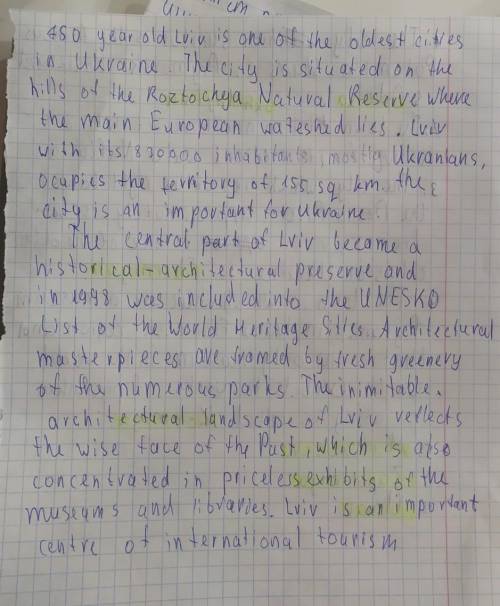 450 year old Lviv is one of the oldest cities
in Ukraine. The city is situated on the
hills of the Roztochya Natural Reserve where
the main European wateshed lies. Lviv
with its 830000 inhabitants mostly Ukranians,
ocupies the territory of 155 sq km. the
city is an important for Ukraine.
The central part of Lviv became a
historical-architectural preserve and
in 1998 was included into the UNESKO
List of the World Heritage Sites. Architectural
masterpieces are framed by fresh greenery
of the numerous parks. The inimitable.
architectural landscape of Lviv reflects
the wise face of the Past, which is also
concentrated in priceless exhibits of the
museums and libraries. Lviv is an important
centre of international tourism